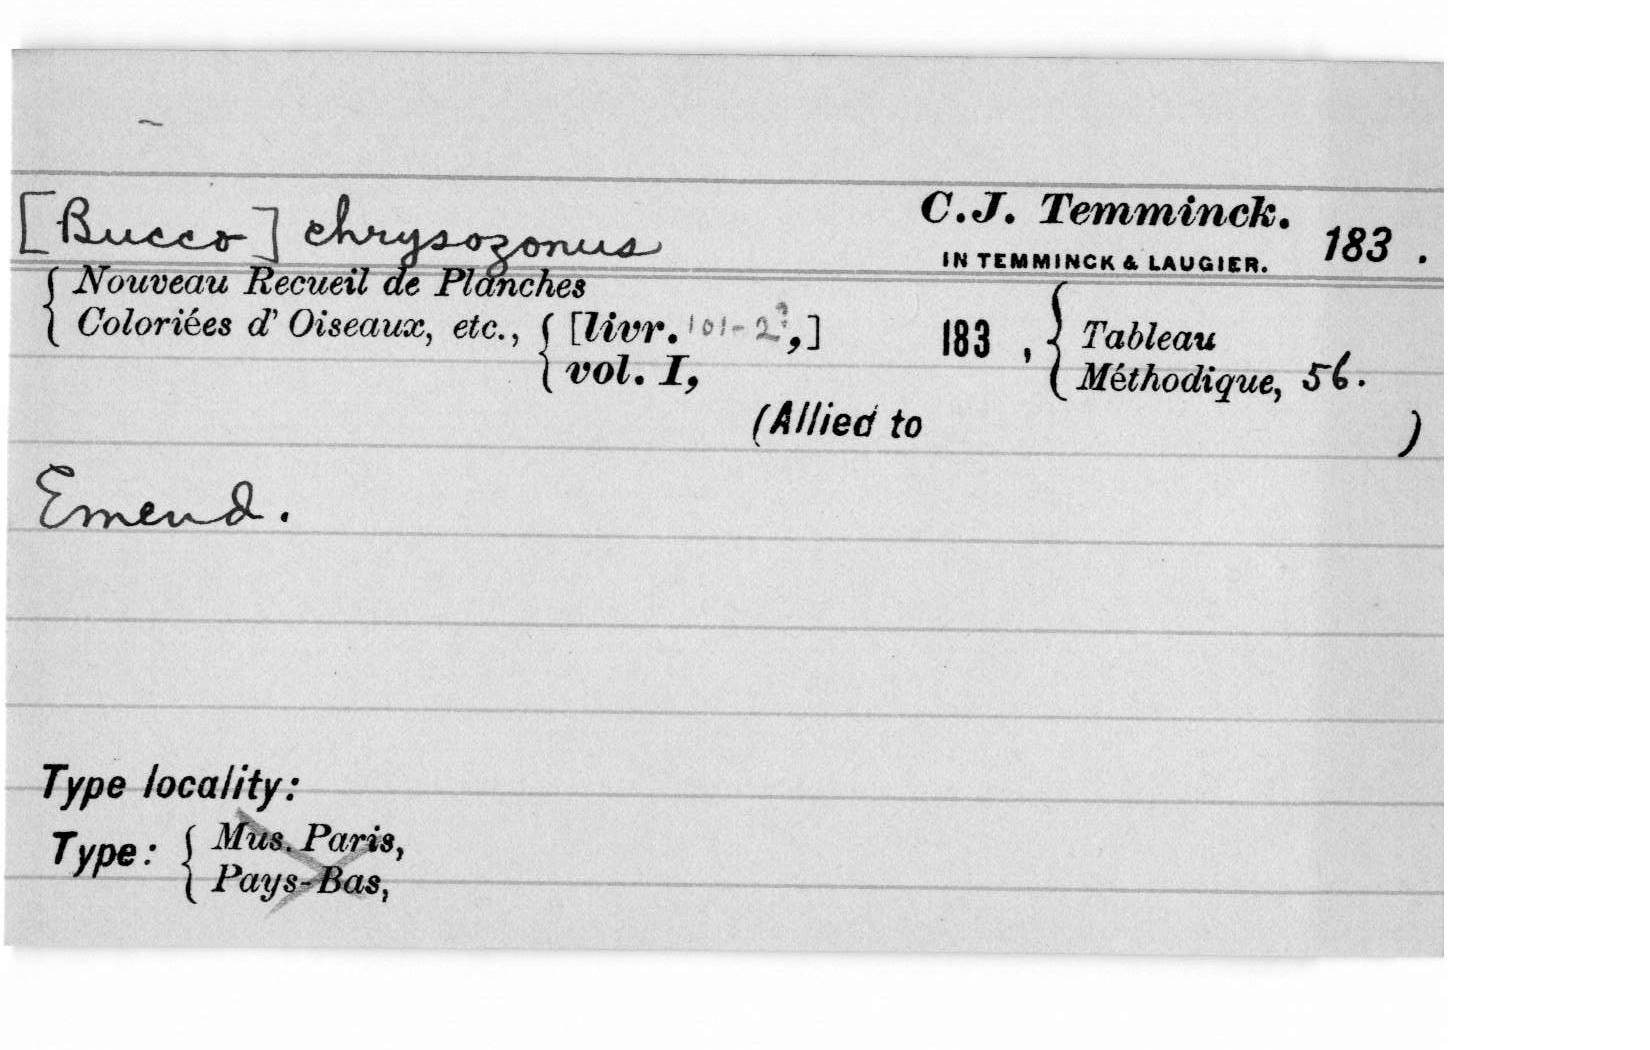 [Bucco] chrysozonus C.J. Temminck. 183 .
IN TEMMINCK & LAUGIER.
Nouveau Recueil de Planches
Coloriées d' Oiseaux, etc., [livr. 101-2?,] 183 , Tableau
vol. I, Méthodique, 56.
(Allied to )
Emend.
Type locality:
Type: Mus. Paris,
Pays-Bas,